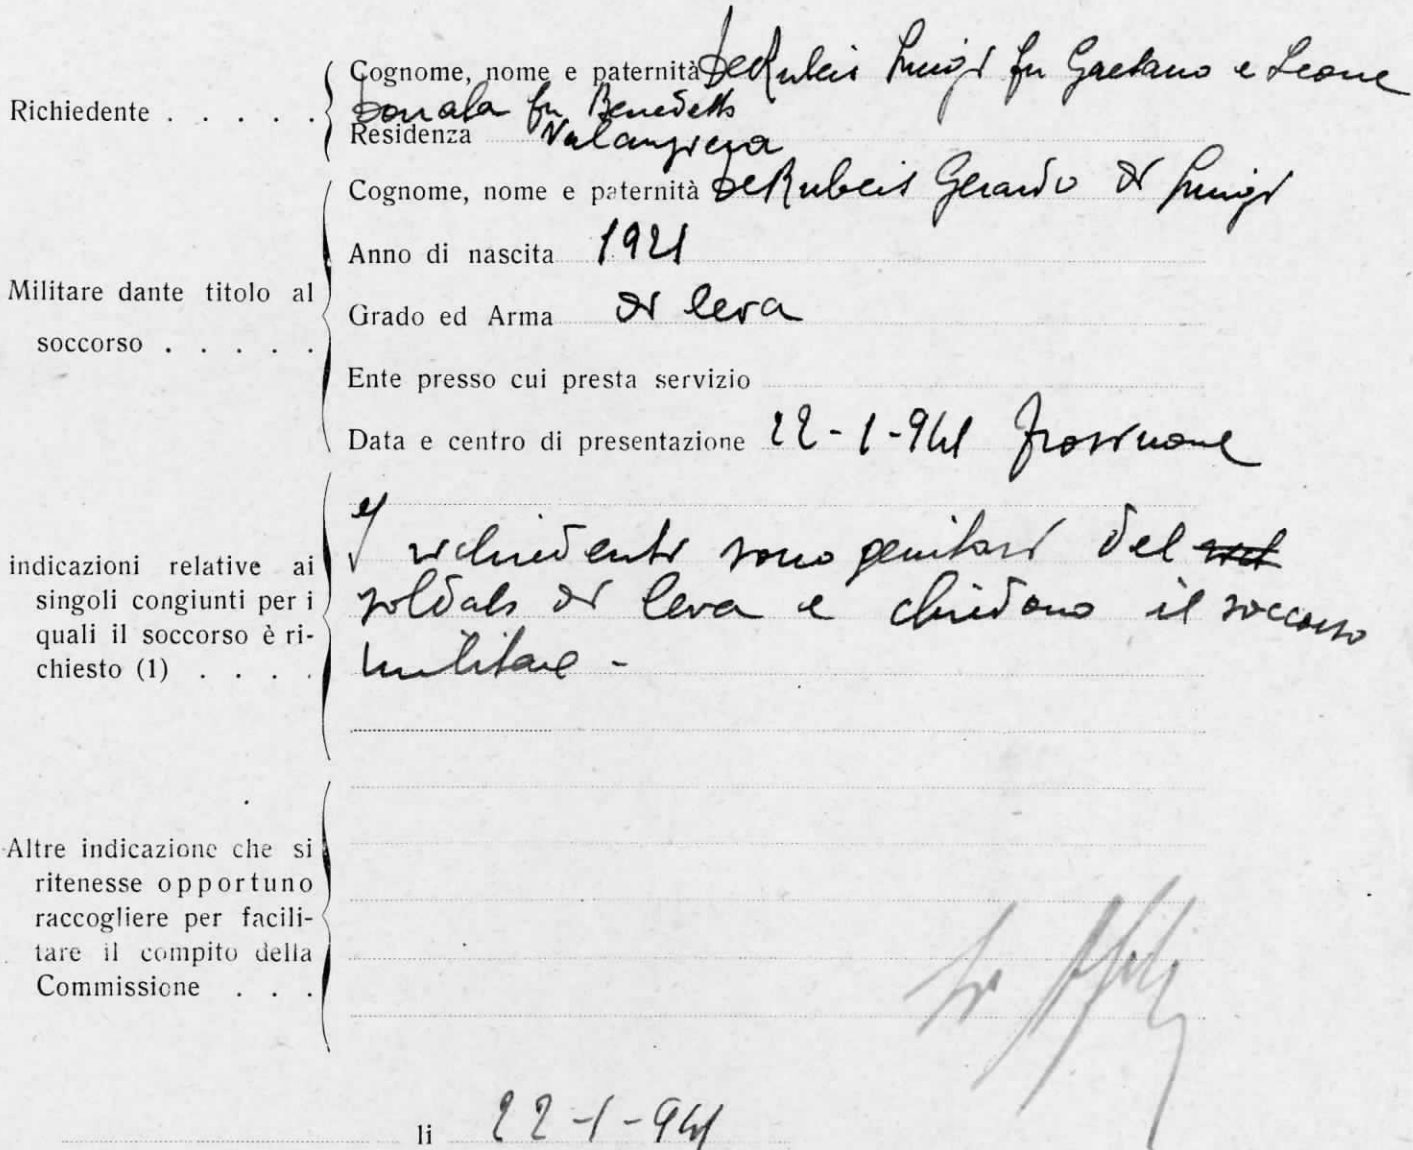 Richiedente . . . . .
Cognome, nome e paternità DeRubeis Luigi fu Gaetano e Leone
Donata fu Benedetto
Residenza
Militare dante titolo al
soccorso . . . . .
Cognome, nome e paternità DeRubeis Gerardo di Luigi
Anno di nascita 1921
Grado ed Arma di leva
Ente presso cui presta servizio
Data e centro di presentazione 22-1-941 Frosinone
indicazioni relative ai
singoli congiunti per i
quali il soccorso è ri-
chiesto (1) . . . .
I richiedenti sono genitori del
soldato di leva e chiedono il soccorso
militare -
Altre indicazione che si
ritenesse opportuno
raccogliere per facili-
tare il compito della
Commissione . . .
li 22-1-941